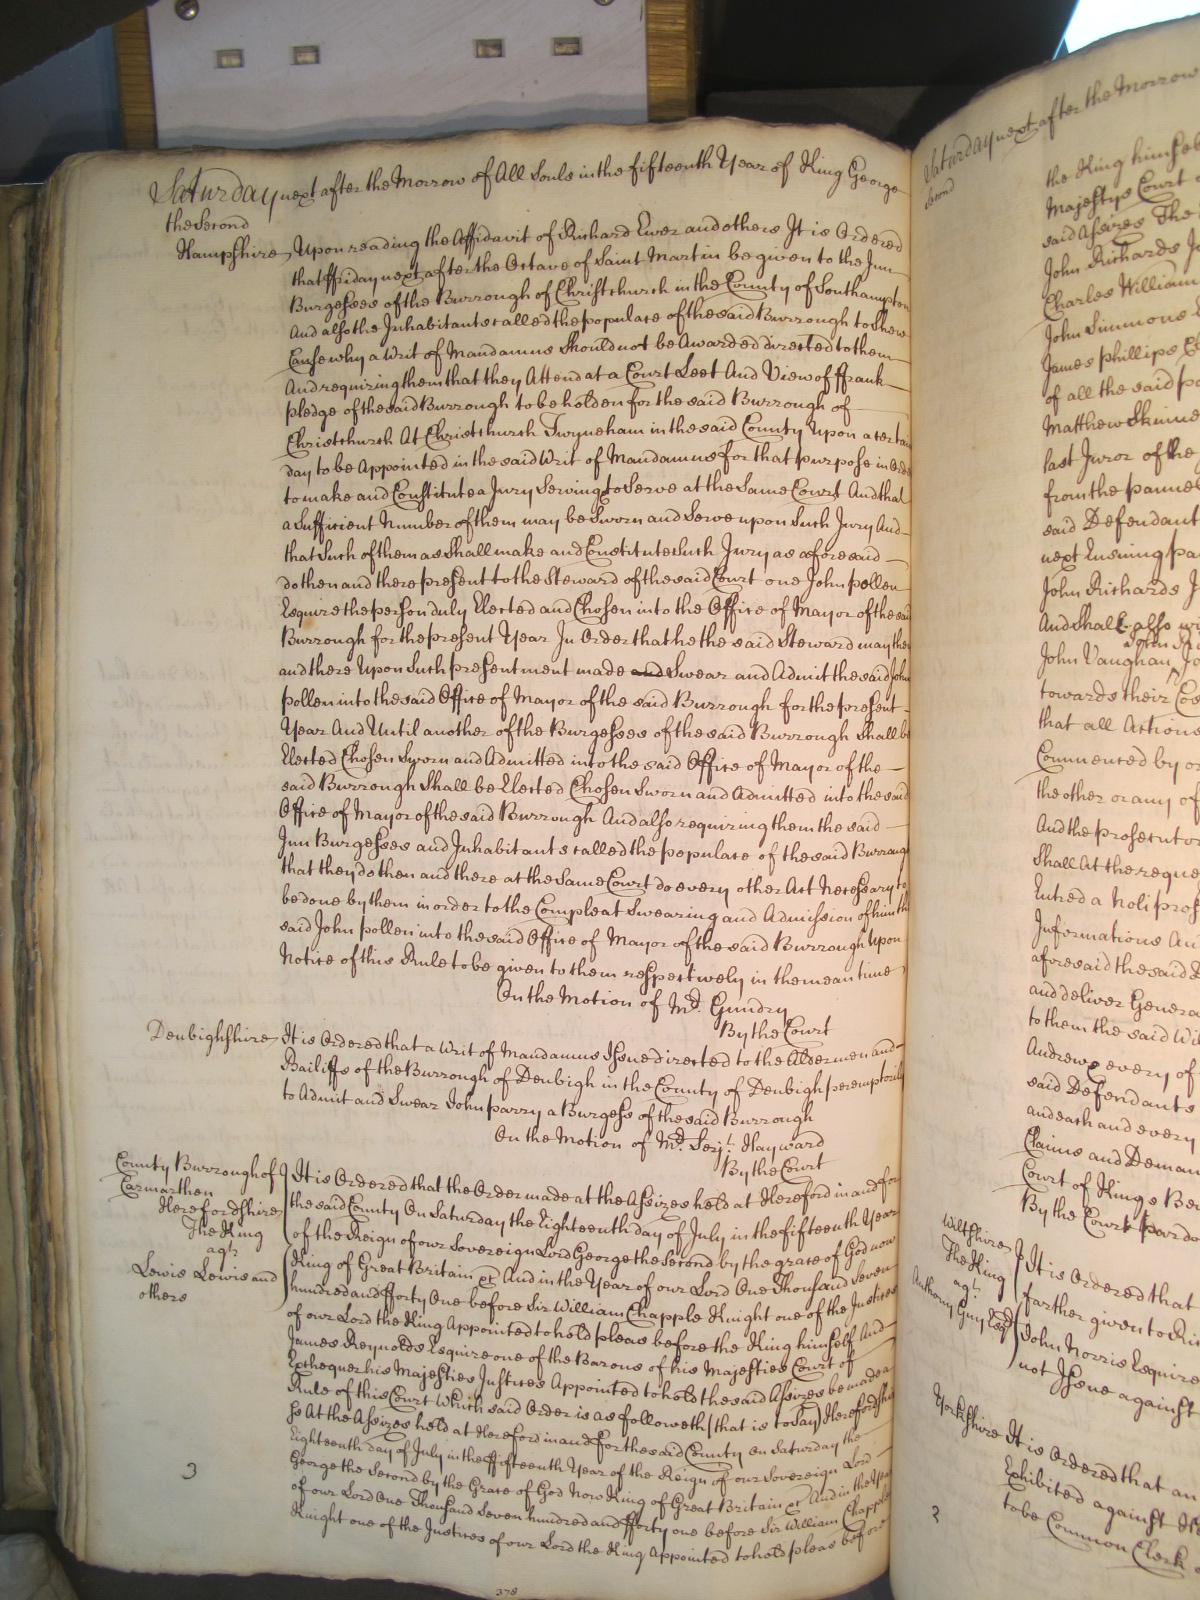 Saturday next after the Morrow of All Souls in the fifteenth Year of King George
the Second
Hampshire Upon reading the Affidavit of Richard Ewer and others It is Ordered
that ffriday next after the Octave of Saint Martin be given to the Inn
Burgesses of the Burrough of Christchurch in the County of Southampton
And also the Inhabitants called the populace of the said Burrough to Shew
Cause why a Writ of Mandamus Should not be Awarded directed to them
And requiring them that they Attend at a Court Leet And View of ffrank
pledge of the said Burrough to be holden for the said Burrough of
Christchurch At Christchurch Twyneham in the said County Upon a certain
day to be Appointed in the said Writ of Mandamus for that purpose in Order
to make and Constitute a Jury Serving to Serve at the Same Court And that
a Sufficient Number of them may be Sworn and Serve upon Such Jury And
that Such of them as Shall make and Constitute Such Jury as aforesaid
do then and there present to the Steward of the said Court one John pollen
Esquire the person duly Elected and Chosen into the Office of Mayor of the said
Burrough for the present Year In Order that he the said Steward may then
and there Upon Such presentment made and Swear and Admit the said John
pollen into the said Office of Mayor of the said Burrough for the present
Year And Until another of the Burgesses of the said Burrough Shall be
Elected Chosen Sworn and Admitted into the said Office of Mayor of the
said Burrough Shall be Elected Chosen Sworn and Admitted into the said
Office of Mayor of the said Burrough And also requiring them the said
Inn Burgesses and Inhabitants called the populace of the said Burrough
that they do then and there at the Same Court do every other Act Necessary to
be done by them in order to the Compleat Swearing and Admission of him the
said John pollen into the said Office of Mayor of the said Burrough Upon
Notice of this Rule to be given to them respectively in the mean time
On the Motion of Mr. Gundry
By the Court
Denbighshire It is Ordered that a Writ of Mandamus Issue directed to the Aldermen and
Bailiffs of the Burrough of Denbigh in the County of Denbigh peremptorily
to Admit and Swear John parry a Burgess of the said Burrough
On the Motion of Mr. Serjt. Hayward
By the Court
County Burrough of
Carmarthen
Herefordshire
The King
agt.
Lewis Lewis and
others
It is Ordered that the Order made at the Assizes held at Hereford in and for
the said County On Saturday the Eighteenth day of July in the fifteenth Year
of the Reign of our Sovereign Lord George the Second by the grace of God now
King of Great Britain &c And in the Year of our Lord One Thousand Seven
hundred and fforty One before Sir William Chapple Knight one of the Justices
of our Lord the King Appointed to hold pleas before the King himself And
James Reynolds Esquire one of the Barons of his Majesties Court of
Exchequer his Majesties Justices Appointed to hold the said Assizes be made a
Rule of this Court Which said Order is as followeth (that is to Say) Herefordshire
ss At the Assizes held at Hereford in and for the said County on Saturday the
Eighteenth day of July in the ffifteenth Year of the Reign of our Sovereign Lord
George the Second by the Grace of God Now King of Great Britain &c And in the Year
of our Lord One Thousand Seven hundred and fforty one before Sir William Chapple
Knight one of the Justices of our Lord the King Appointed to hold pleas before
3
378
Saturday next after the Morrow
Second
the King himself
Majestys Court
said Assizes The
John Richards
Charles William
John Simmons
James phillips
of all the said
Matthew Skinne
last Juror of the
from the pannel
said Defendant
next Ensuing
John Richards
And Shall also
John Vaughan
towards their
that all Actions
Commenced by
the other or any of
And the prosecutor
Shall At the reque
Entred a Noli
Informations An
aforesaid the said
and deliver Genera
to them the said
Andrews every of
said Defendants
and each and every
Claims and Deman
Court of Kings
By the Court
Wiltshire
The King
agt.
Anthony Guy Esqr
It is Ordered that
farther given to
John Norris Esquire
not Issue against
Yorkshire It is Ordered that an
Exhibited against
to be Common Clerk